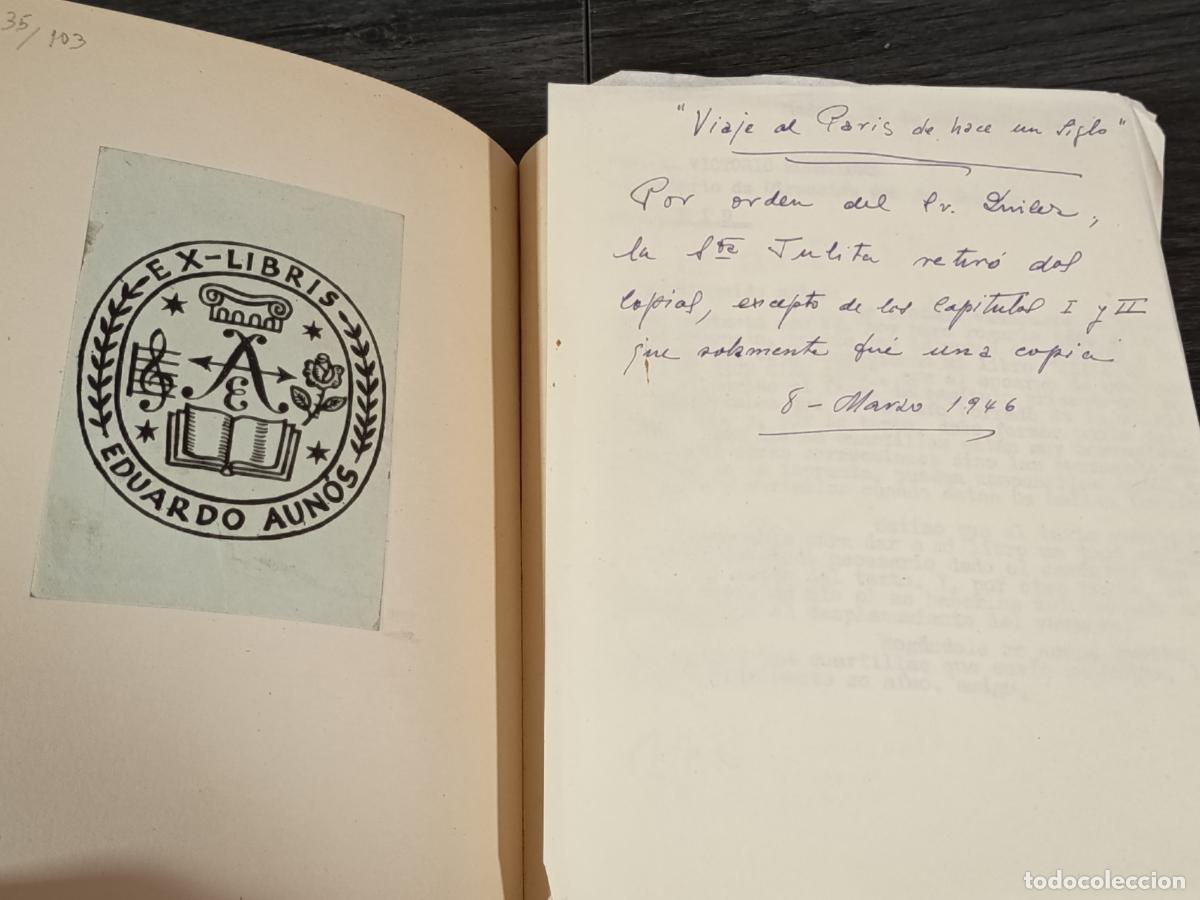 35/103
EX-LIBRIS
A
E
EDUARDO AUNÓS
"Viaje al Paris de hace un siglo"
Por orden del Sr. Quiles,
la Sta Julita retiró dos
copias, excepto de los Capitulos I y II
que solamente fué una copia
8 - Marzo 1946
todocoleccion